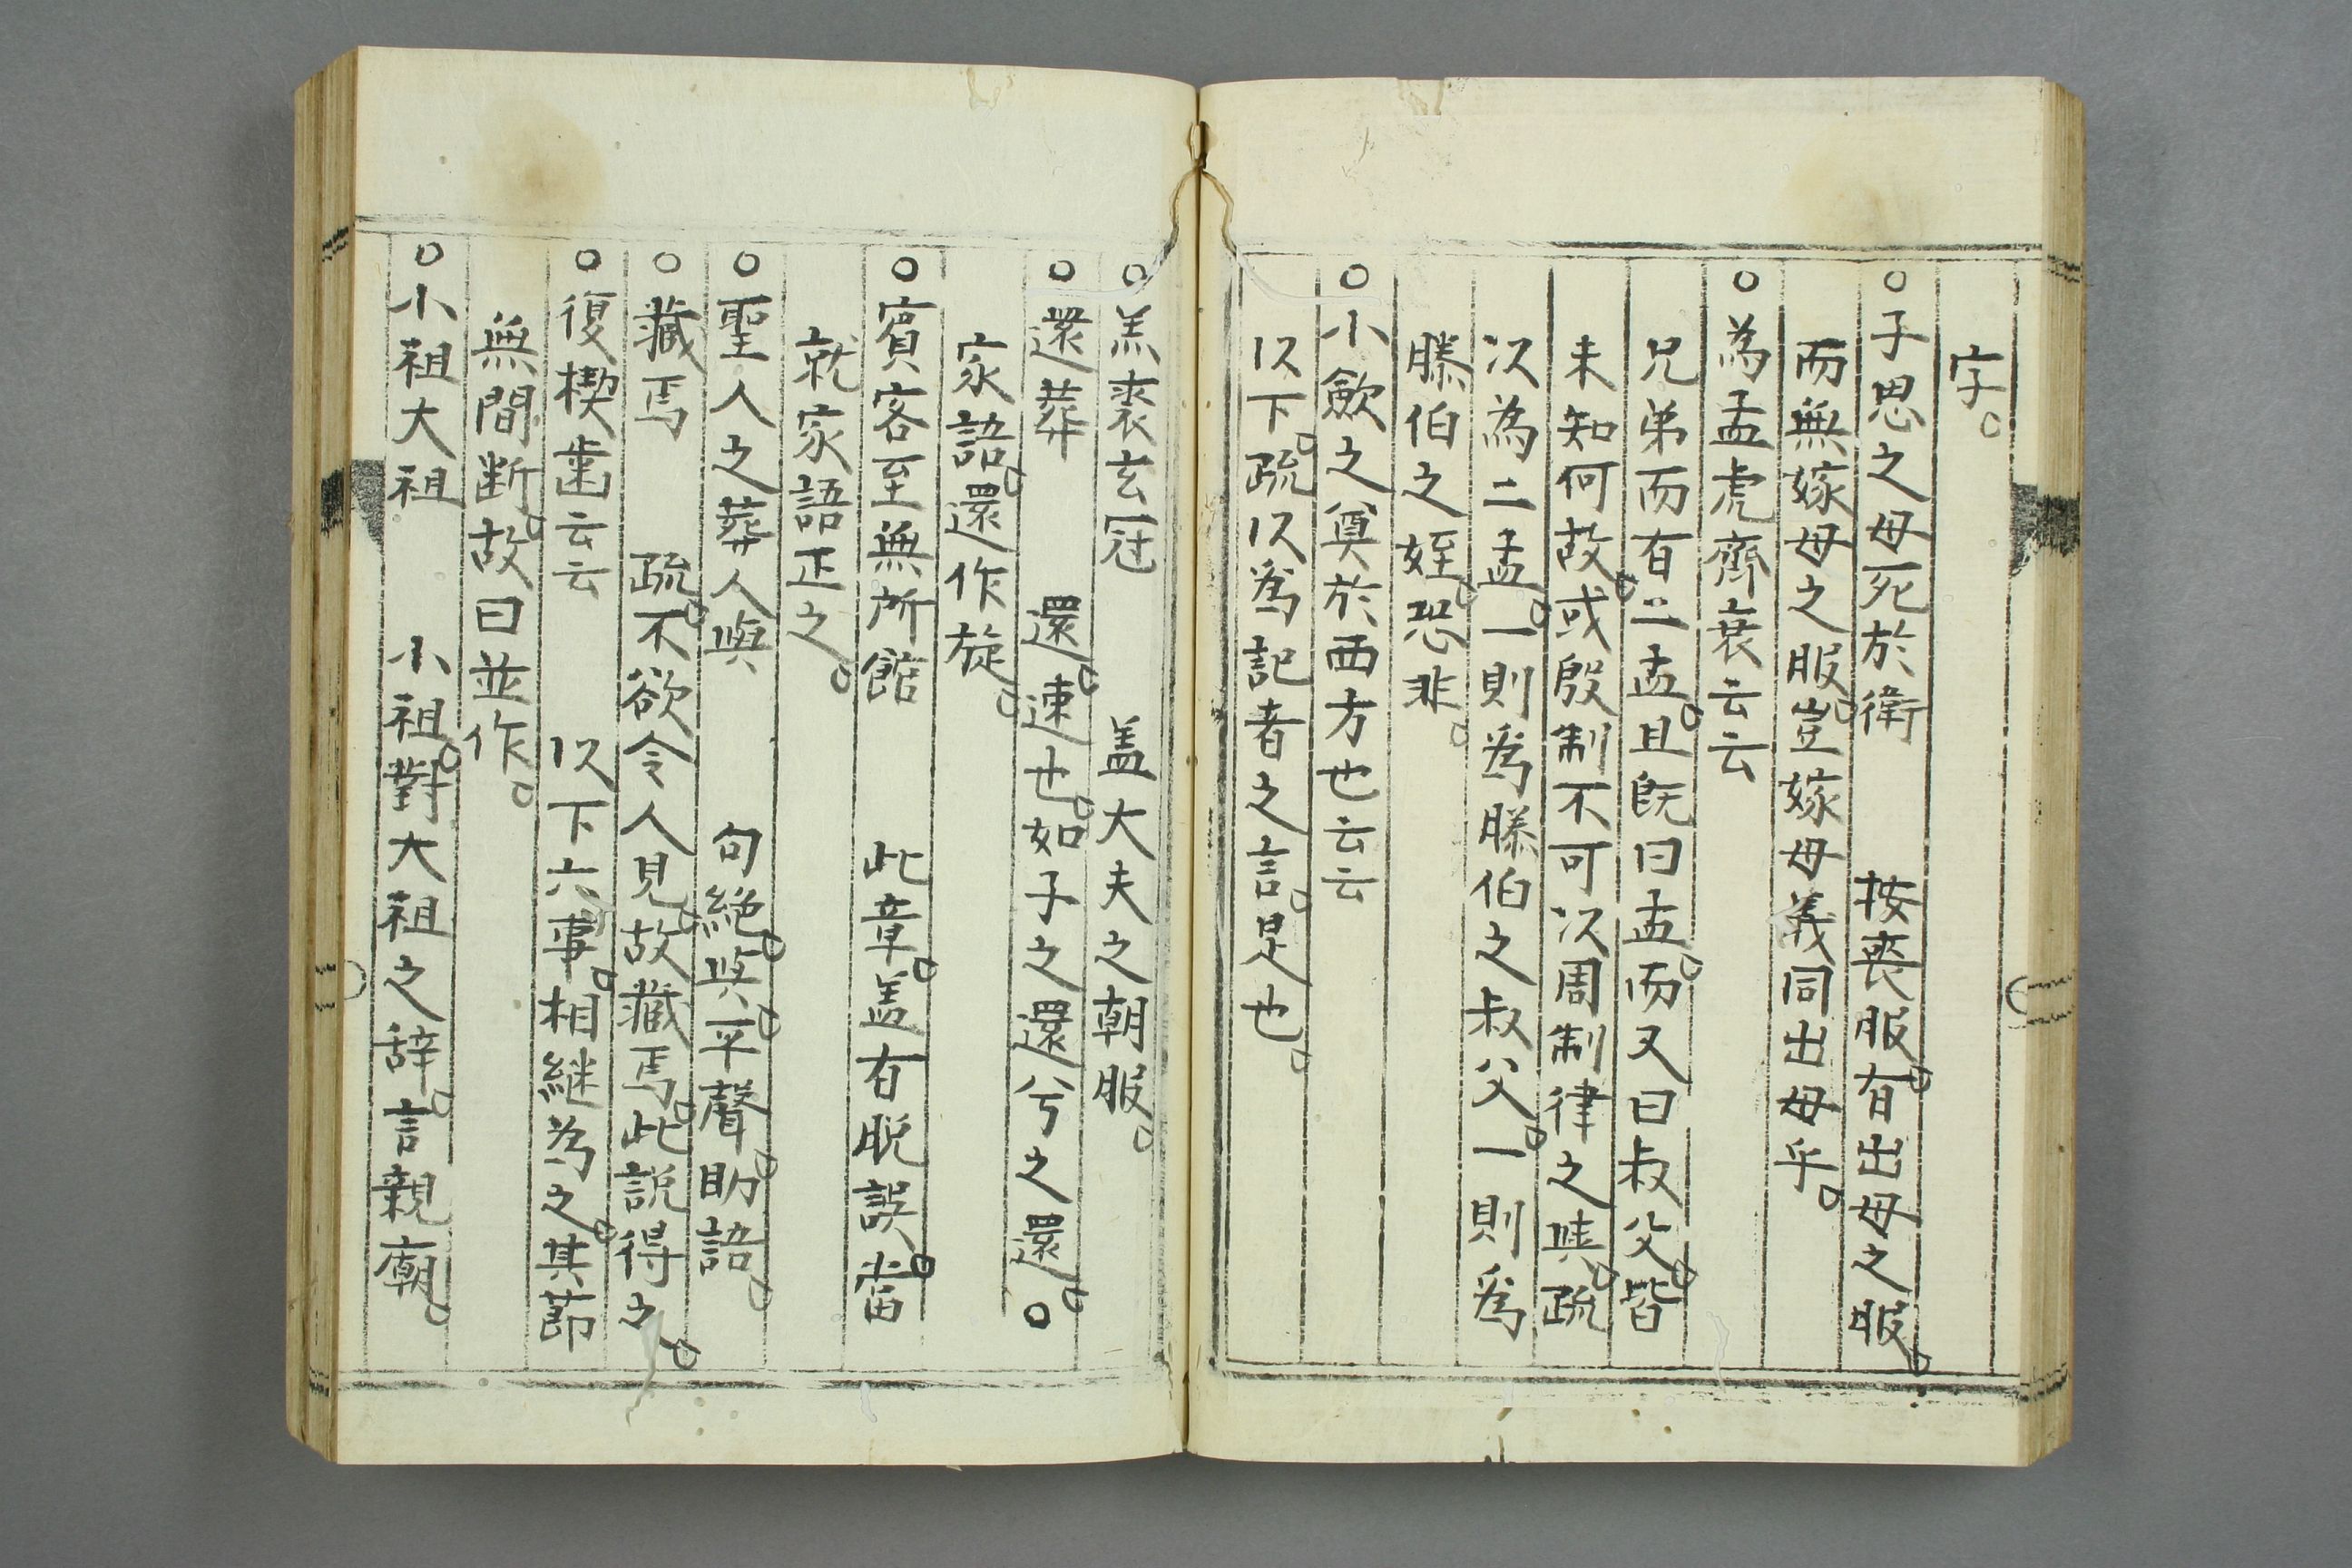 字。
○子思之母死於衛　按喪服。有出母之服。
而無嫁母之服。豈嫁母義同出母乎。
○為孟虎齊衰云云
兄弟而有二孟。且旣曰孟。而又曰叔父。皆
未知何故。或殷制不可以周制律之歟。疏
以為二孟。一則爲滕伯之叔父。一則爲
滕伯之姪。恐非。
○小歛之奠於西方也云云
以下。疏以爲記者之言。是也。
○羔裘玄冠　盖大夫之朝服。
○還葬　還。速也。如子之還兮之還。○
家語。還作旋。
○賓客至無所館　此章。盖有脫誤。當
就家語正之。
○聖人之葬人與　句絶。與。平聲。助語。
○藏焉　疏。不欲令人見。故藏焉。此說得之。
○復楔齒云云　以下六事。相継為之。其莭
無間断。故曰並作。
○小祖大祖　小祖。對大祖之辞。言親廟。